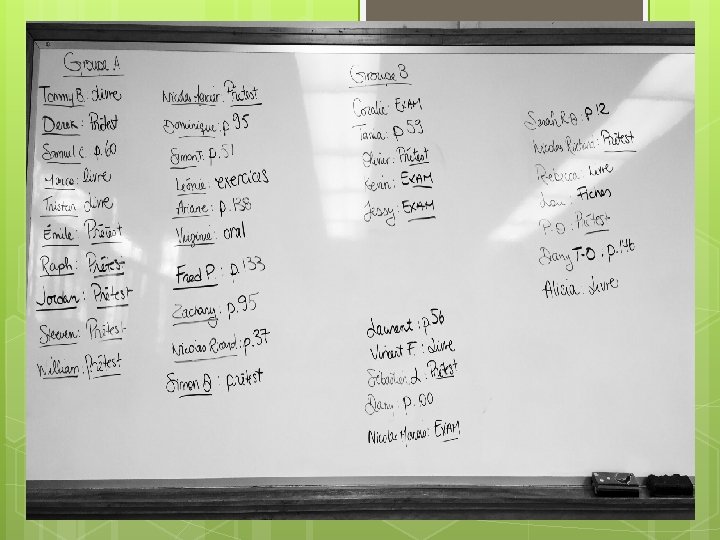 Groupe A
Tommy B.: Livre
Derek: Prétest
Samuel C. p.60
Marco: livre
Tristan: Livre
Émile: Prétest
Raph: Prétest
Jordan: Prétest
Steeven: Prétest
William: Prétest
Nicolas Mercier: Prétest
Dominique: p.95
Simon T. p.51
Léonie: exercices
Ariane: p.138
Virginie: oral
Fred P.: p.133
Zachary: p.95
Nicolas Ricard: p.37
Simon B: prétest
Groupe B
Coralie: EXAM
Tania: p 59
Olivier: Prétest
Kevin: EXAM
Jessy: EXAM
Laurent: p.56
Vincent F.: Livre
Sébastien L.: Prétest
Dany: p.60
Nicolas: EXAM
Sarah R.B: p.12
Nicolas: Prétest
Rebecca: Livre
Lou: Fiches
P.O: Prétest
Dany T-O. p.146
Alicia: Livre